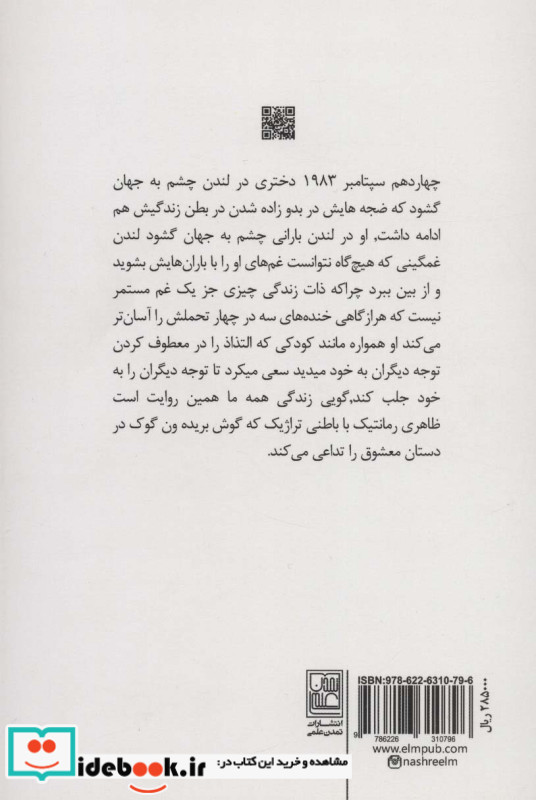 چهاردهم سپتامبر ۱۹۸۳ دختری در لندن چشم به جهان
گشود که ضجه هایش در بدو زاده شدن در بطن زندگیش هم
ادامه داشت, او در لندن بارانی چشم به جهان گشود لندن
غمگینی که هیچ‌گاه نتوانست غم‌های او را با باران‌هایش بشوید
و از بین ببرد چراکه ذات زندگی چیزی جز یک غم مستمر
نیست که هرازگاهی خنده‌های سه در چهار تحملش را آسان‌تر
می‌کند او همواره مانند کودکی که التذاذ را در معطوف کردن
توجه دیگران به خود میدید سعی میکرد تا توجه دیگران را به
خود جلب کند,گویی زندگی همه ما همین روایت است
ظاهری رمانتیک با باطنی تراژیک که گوش بریده ون گوک در
دستان معشوق را تداعی می‌کند.
ISBN:978-622-6310-79-6
9 786226 310796
۲۸۵۰۰۰ ریال
تمدن علمی
انتشارات
تمدن‌علمی
www.elmpub.com
nashreelm
مشاهده و خرید این کتاب در:
idebook.ir